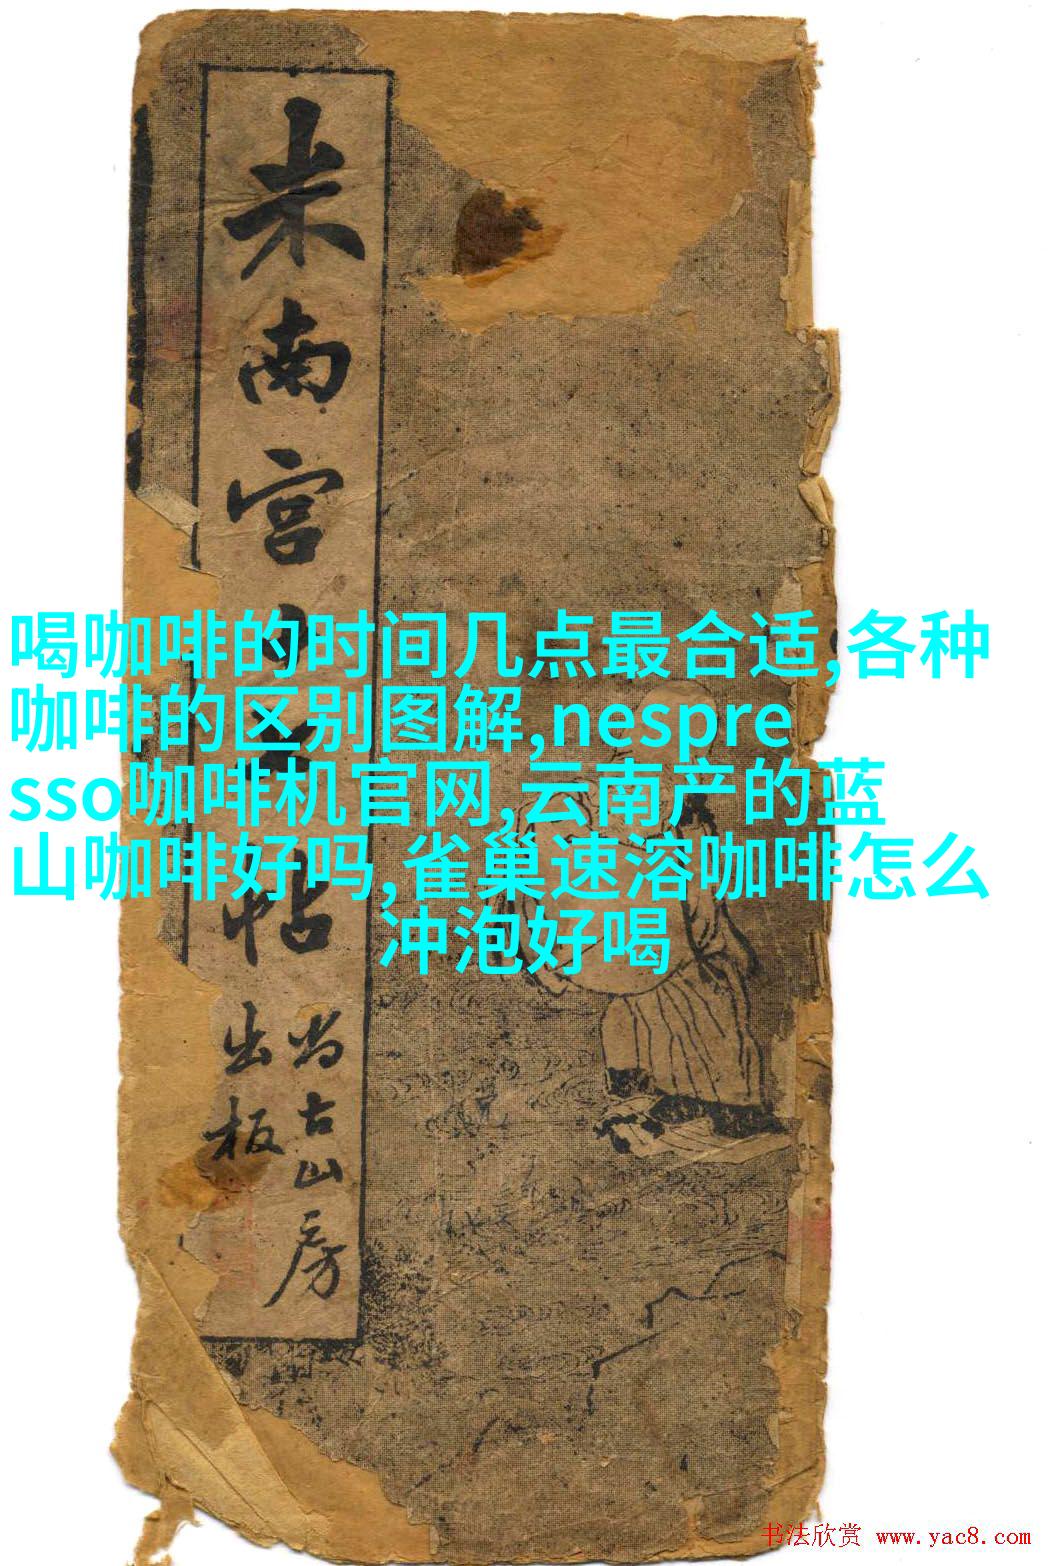 米南宫
帖
尚古山房
出板
喝咖啡的时间几点最合适,各种
咖啡的区别图解,nespre
sso咖啡机官网,云南产的蓝
山咖啡好吗,雀巢速溶咖啡怎么
冲泡好喝
书法欣赏 www.yac8.com